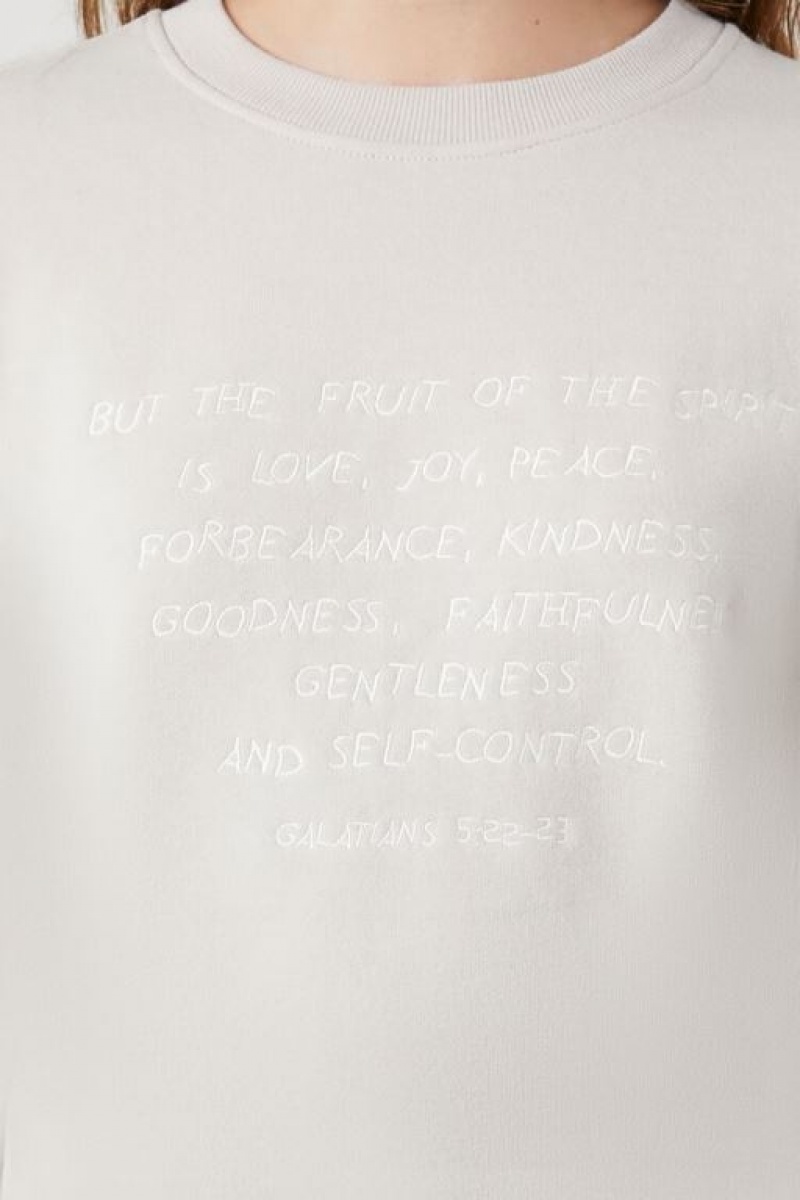 BUT THE FRUIT OF THE SPIRIT
IS LOVE, JOY, PEACE,
FORBEARANCE, KINDNESS,
GOODNESS, FAITHFULNE
GENTLENESS
AND SELF-CONTROL.
GALATIANS 5:22-23